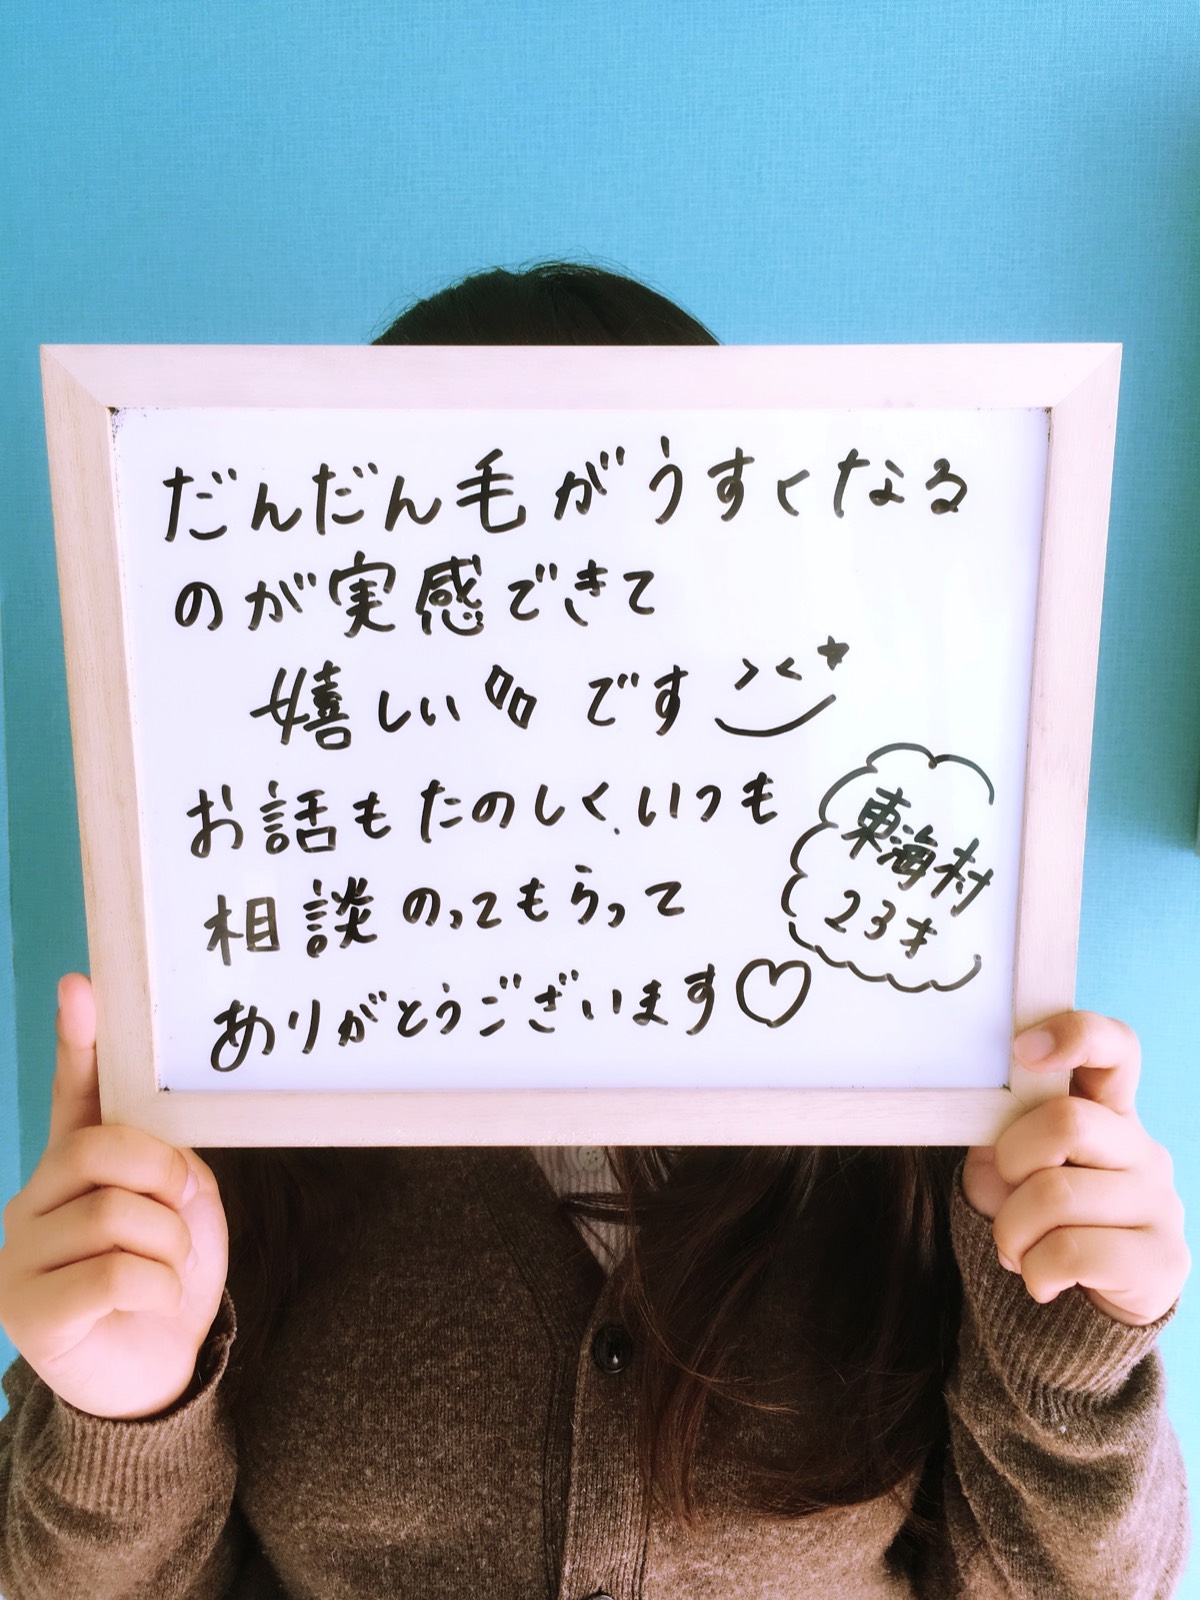 だんだん毛がうすくなる
のが実感できて
嬉しい です
お話もたのしく、いつも
相談のってもらって
ありがとうございます♡
東海村
23才